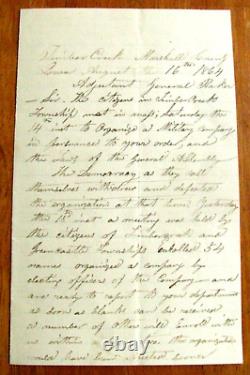 Timber Creek Marshall County
Iowa August the 16th 1864
Adjutant General Baker
Sir. The citizens in Timber Creek
Township met in mass, Saturday the
inst to Organize a Military Company
in pursuance to your order, and
the laws of the General Assembly
The Democracy as they call
themselves and defeated
the organization at that time Yesterday
the 15th inst a meeting was held by
the citizens of Timbercreek and
Townships enrolled 54
names organized a company by
electing officers of the Company and
are ready to report to your department
as soon as blanks can be received
a number of other will Enroll with
us within a the organization
would have been sooner